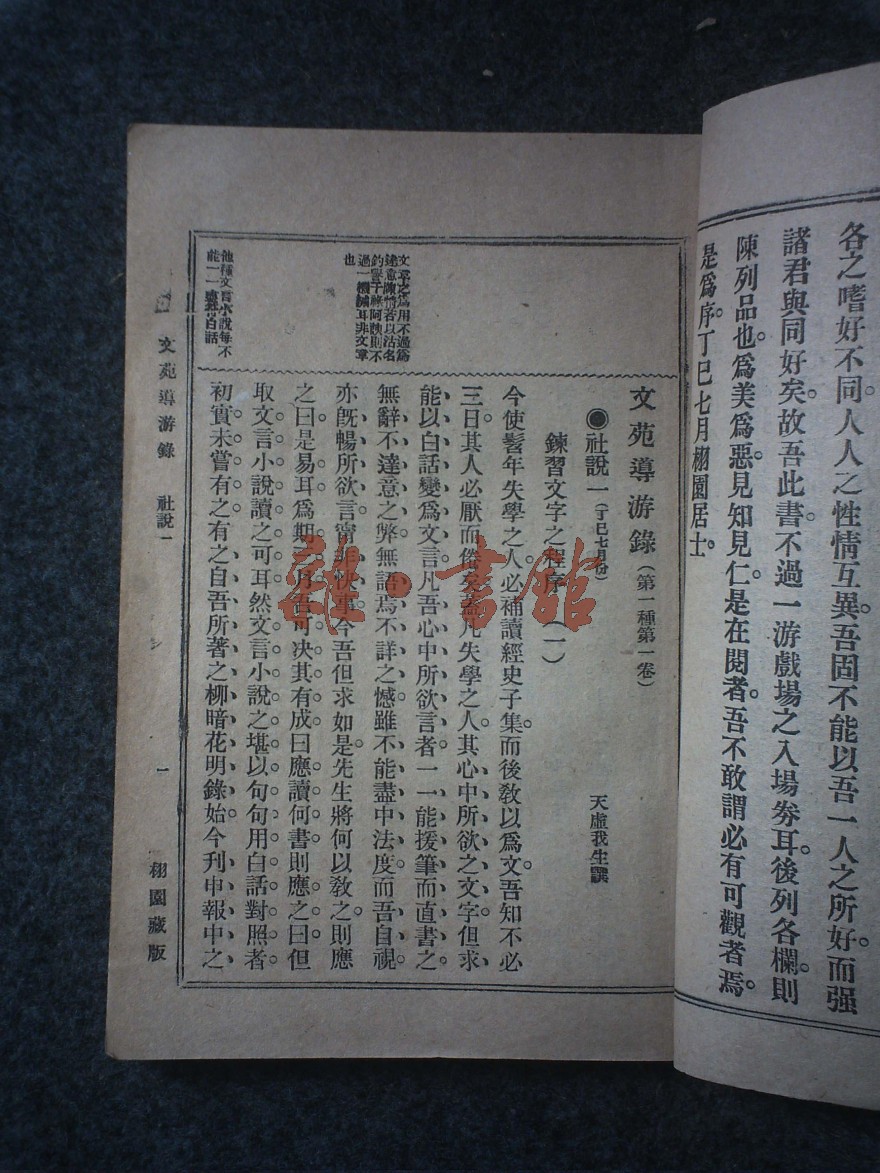 各之嗜好不同。人人之性情互異。吾固不能以吾一人之所好。而强
諸君與同好矣。故吾此書。不過一游戲場之入場券耳。後列各欄。則
陳列品也。爲美爲惡。見知見仁。是在閱者。吾不敢謂必有可觀者焉。
是爲序。丁巳七月栩園居士。
文苑導游錄（第一種第一卷）
●社說一（丁巳七月份）
天虛我生譔
鍊習文字之程序（一）
今使髫年失學之人。必補讀經史子集。而後敎以爲文。吾知不必
三日。其人必厭而倦矣。凡失學之人。其心中所欲之文字。但求
能以白話變爲文言。凡吾心中所欲言者。一一能援筆而直書之、
無辭不達意之弊、無語焉不詳之憾、雖不能盡中法度、而吾自視、
亦旣暢所欲言、甯非快事、今吾但求如是、先生將何以敎之。則應
之曰。是易耳。爲期一月。吾可决其有成。曰應讀何書。則應之曰。但
取文言小說讀之可耳。然文言小說之堪以句句用白話對照者。
初實未嘗有之。有之自吾所著之柳暗花明錄始。今刊申報中之、
文章之爲用不過爲
達意陳情若以沽名
釣譽干祿阿諛則不
過一機械耳非文章
也
他種文言小說每不
能一一盡其白話
文苑導游錄　社說一
一
栩園藏版
雜·書館